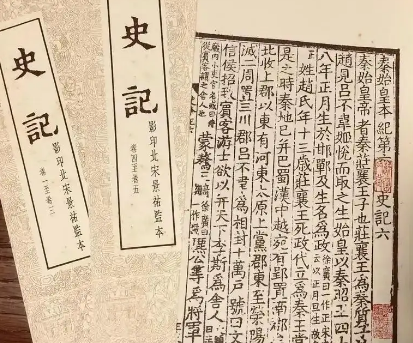 史記
影印北宋景祐監本
卷一至卷三
史記
影印北宋景祐監本
卷四至卷五
秦始皇本紀第六 史記六
秦始皇帝者秦莊襄王子也莊襄王爲秦質子
趙見呂不韋姬悅而取之生始皇以秦昭王四十
八年正月生於邯鄲及生名爲政徐廣曰一作正宋忠云以正月旦生故
姓趙氏年十三歲莊襄王死政代立爲秦王當
是之時秦地已并巴蜀漢中越宛有郢置南郡
北收上郡以東有河東太原上黨郡東至滎陽
滅二周置三川郡呂不韋爲相封十萬戶號曰文
信侯招致賓客游士欲以并天下李斯爲舍人
蒙驁 麃公等爲將軍